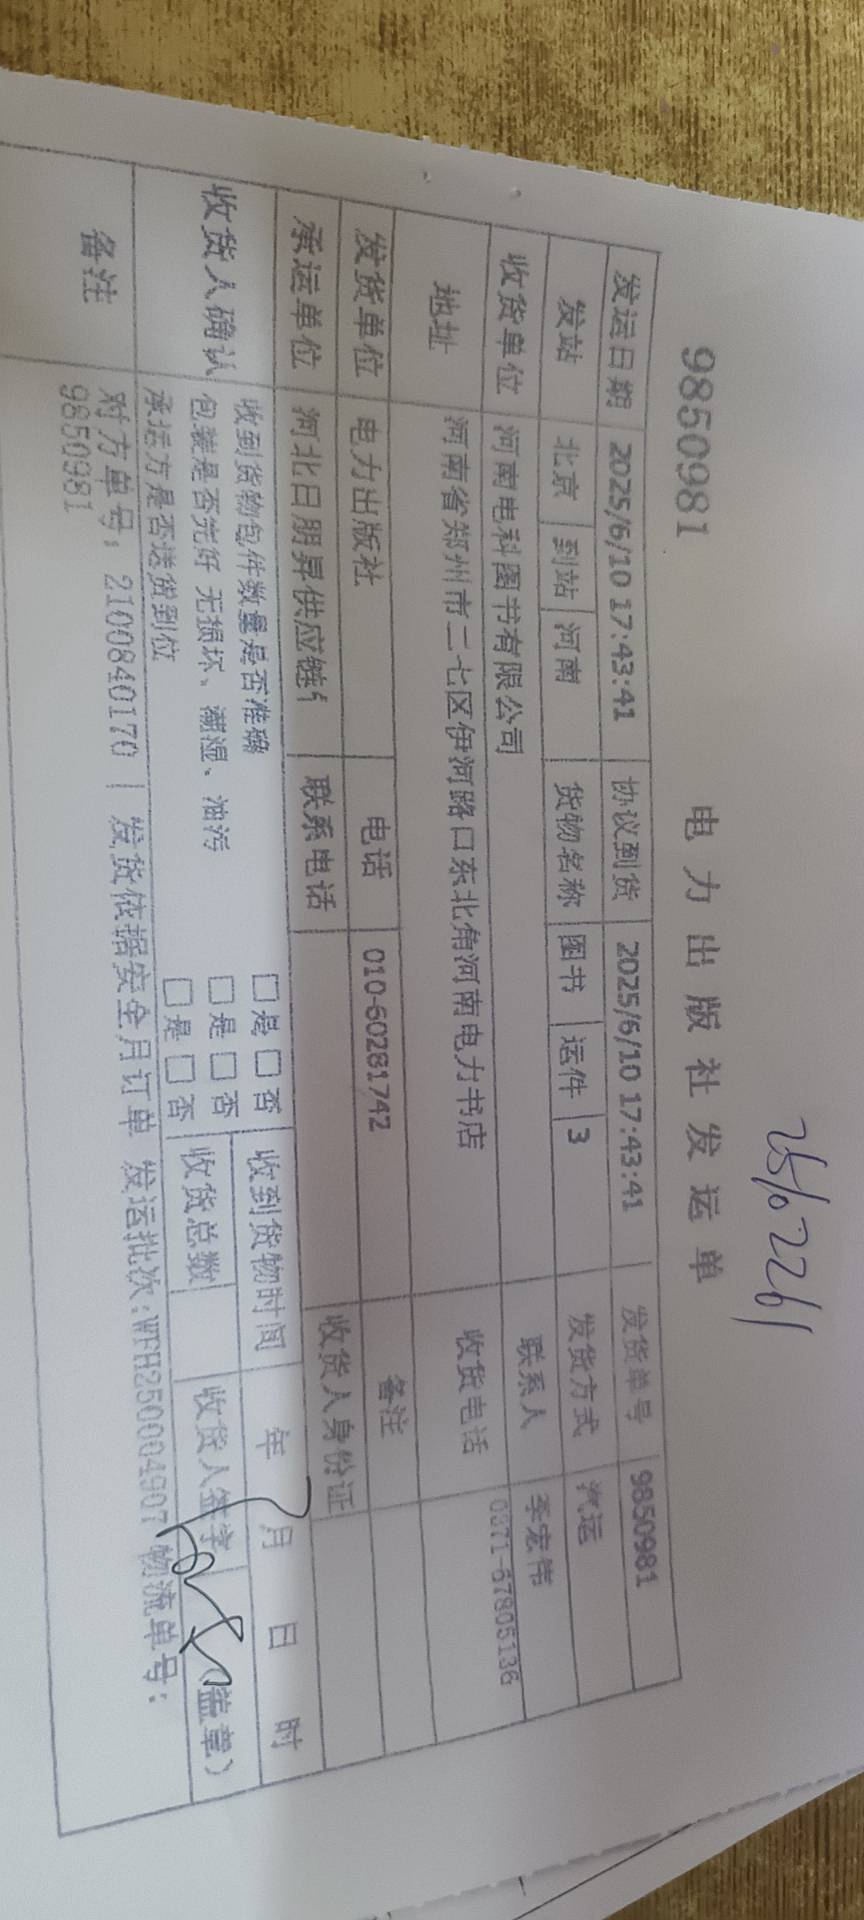 25102261
9850981 电力出版社发运单
发运日期 2025/6/10 17:43:41 协议到货 2025/6/10 17:43:41 发货单号 9850981
发站 北京 到站 河南 货物名称 图书 运件 3 发货方式 汽运
收货单位 河南电科图书有限公司 联系人 李宏伟
地址 河南省郑州市二七区伊河路口东北角河南电力书店 收货电话 0371-67805136
发货单位 电力出版社 电话 010-60281742 备注
承运单位 河北日朋昇供应链 联系电话 收货人身份证
收货人确认 收到货物包件数量是否准确 □是□否 收到货物时间 年 月 日 时
包装是否完好 无损坏、潮湿、油污 □是□否 收货总数 收货人签字 (盖章)
承运方是否送货到位 □是□否
备注 对方单号：2100840170 | 发货依据安全月订单 发运批次:WFH250004907 物流单号：
9850981